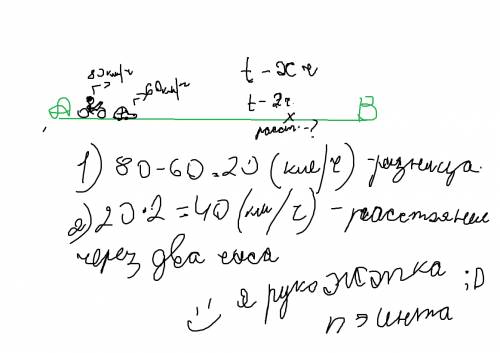 80км/ч
60км/ч
t - х ч
t - 2ч
А В
расст. - ?
1) 80-60=20 (км/ч) - разница.
2) 20·2=40 (км/ч) - расстояние
через два часа
я рукожопка ;D
пэинта